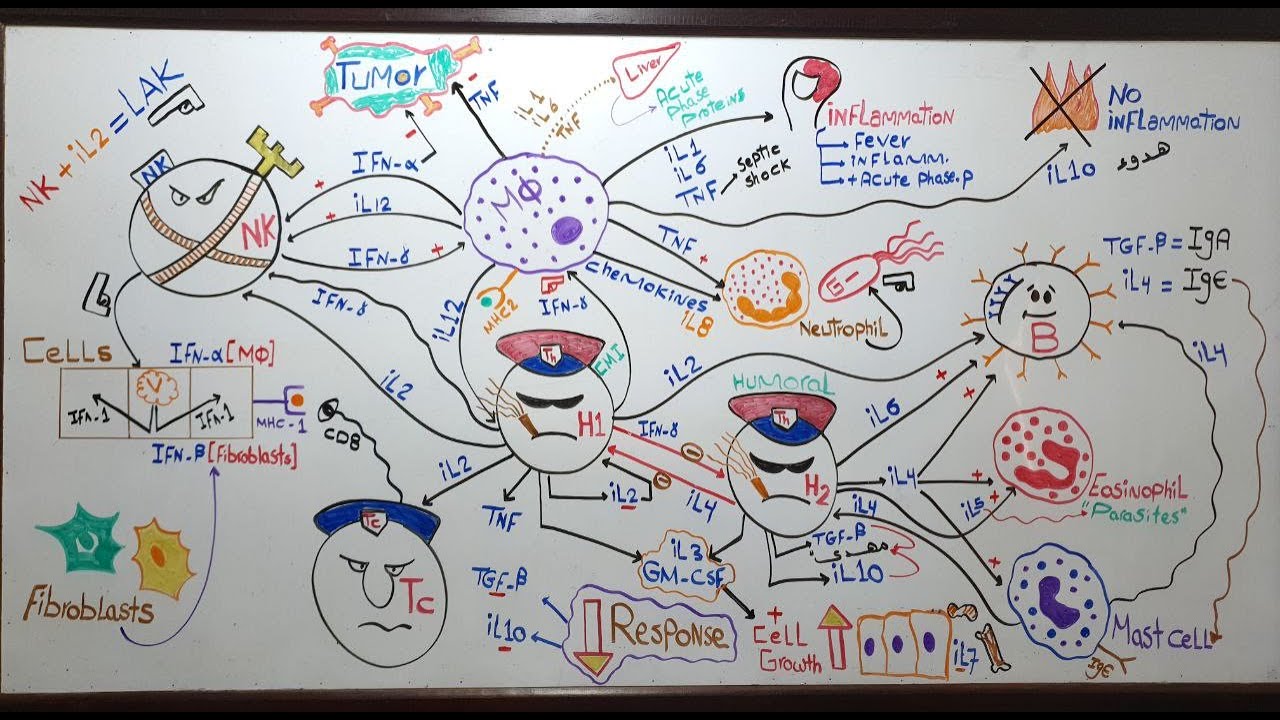 NK + iL2 = LAK
NK
NK
TUMOr
TNF
IFN-α
iL12
IFN-γ
IFN-γ
iL2
iL12
MΦ
iL1
iL6
TNF
Liver
Acute
Phase
Proteins
iL1
iL6
TNF
septic
shock
iNFLammation
Fever
iNFLAMM.
+ Acute Phase.P
NO
iNFLammation
iL10
هدوء
TNF
Chemokines
iL8
Neutrophil
TGF-B = IgA
iL4 = IgE
B
iL4
MHC2
IFN-γ
CMI
Th
H1
iL2
IFN-γ
iL4
HUMORAL
Th
H2
iL6
iL4
iL5
iL4
Eosinophil
"Parasites"
TGF-B
iL10
Mast cell
IgE
Cells
IFN-α [MΦ]
V
IFN-1
IFN-1
MHC-1
IFN-B [Fibroblasts]
CD8
Fibroblasts
Tc
Tc
iL2
TNF
iL2
iL3
GM-CSF
TGF-B
iL10
Response
+
Cell
Growth
iL7